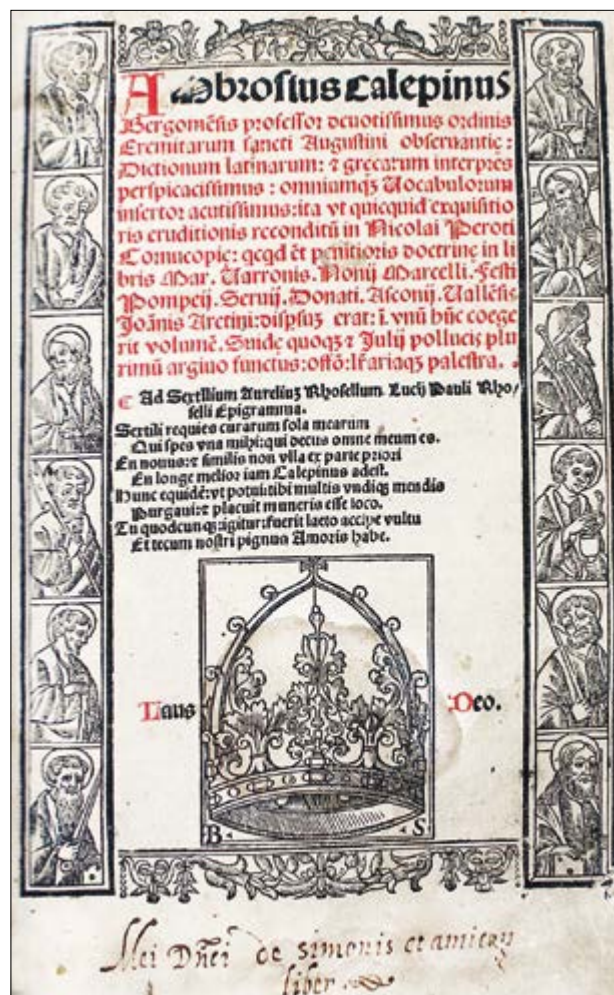 Ambrosius Calepinus
Bergomẽsis professor deuotissimus ordinis
Eremitarum sancti Augustini obseruantię:
Dictionum latinarum: ⁊ grecarum interpres
perspicacissimus: omniumqꝫ Uocabulorum
insertor acutissimus: ita vt quicquid exquisitio
ris eruditionis reconditũ in Nicolai Peroti
Cornucopie: qcqd ẽt penitioris doctrinę in li
bris Mar. Uarronis. Nonij Marcelli. Festi
Pompeij. Seruij. Donati. Asconij. Uallẽsis
Joãnis Aretini: dispsuꝫ erat: ĩ vnũ hũc coege
rit volumẽ. Suide quoqꝫ ⁊ Julij pollucis plu
rimũ argiuo functus: offõ: lr̃ariaqꝫ palestra.
Ad Sextilium Aureliuꝫ Rhosellum. Lucij Pauli Rho/
selli Epigramma.
Sextili requies curarum sola mearum
Qui spes vna mihi: qui decus omne meum es.
En nouus: ⁊ similis non vlla ex parte priori
En longe melior iam Calepinus adest.
Hunc equidẽ: vt potui: tibi multis vndiqꝫ mendis
Purgaui: ⁊ placuit muneris esse loco.
Tu quodcunqꝫ: igitur: fuerit laeto accipe vultu
Et tecum nostri pignus Amoris habe.
Laus Deo.
B S
Mei Dñci de simonis et amicoꝝ
liber